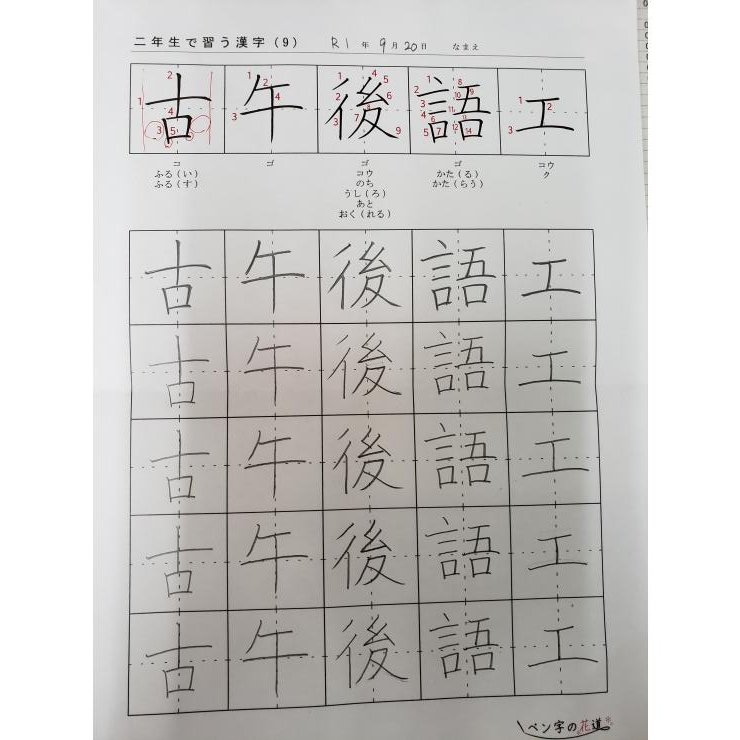 二年生で習う漢字(9) R1年 9月20日 なまえ
古 午 後 語 工
コ ゴ ゴ ゴ コウ
ふる(い) コウ かた(る) ク
ふる(す) のち かた(らう)
うし(ろ)
あと
おく(れる)
古 午 後 語 工
古 午 後 語 工
古 午 後 語 工
古 午 後 語 工
古 午 後 語 工
ペン字の花道